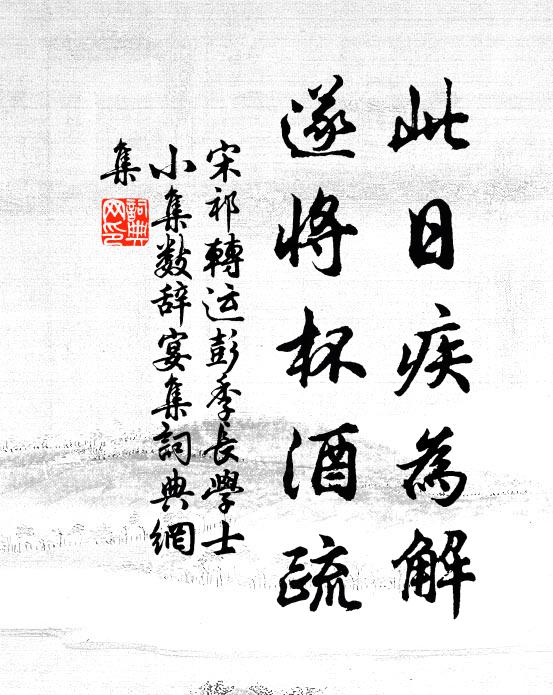 此日疾為解
遂將杯酒疏
宋祁轉运彭季長學士
小集数辞宴集詞典網
集
詞典
网印